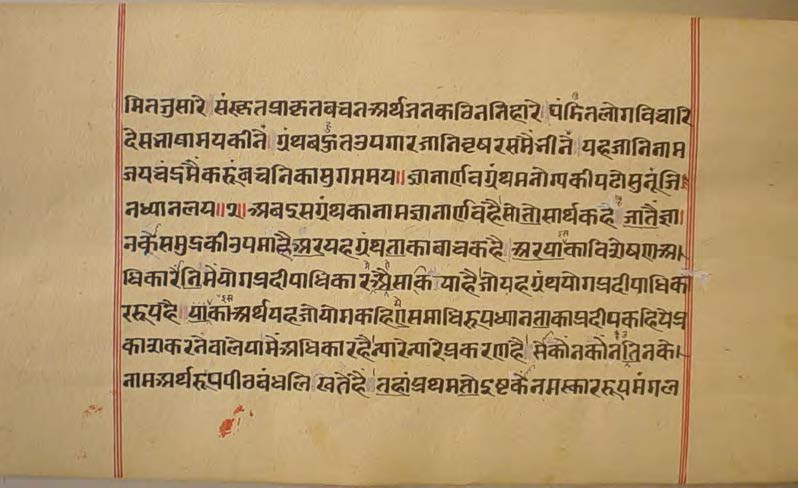 मितनुसारे संस्कृतप्राकृतवचतअर्थजतकठिनतिहारे पंडितलोगविचारि
देसभाषामयकीनें ग्रंथबहुतउपगारजानिवृषरसमैंभीनें यहजानिनाम
जयचंद्रमैंकहूंवचनिकासुगममय॥ज्ञानार्णवग्रंथमनोग्यकीपढोसुनूंजि
नध्यानलय॥१॥अबइसग्रंथकानामज्ञानार्णवहैसोतोसार्थकहै जातैज्ञा
नकूंसमुद्रकीउपमाहैअरयहग्रंथताकावाचकहै अरयाकाविशेषणअ
धिकारैतिमेंयोगप्रदीपाधिकारऔसाकि याहैजोयहग्रंथयोगप्रदीपाधिका
ररूपहै याकाअर्थयहजोयोगकहियेसमाधिरूपध्यानताकाप्रदीपकहियेप्र
काशकरनेवालेयामेंअधिकारहैन्यारेन्यारेप्रकरणहै सोकोनकोनतिनके
नामअर्थरूपपीठबंधलि खतेहैं तहांप्रथमतोइष्टकेनमस्काररूपमंगल